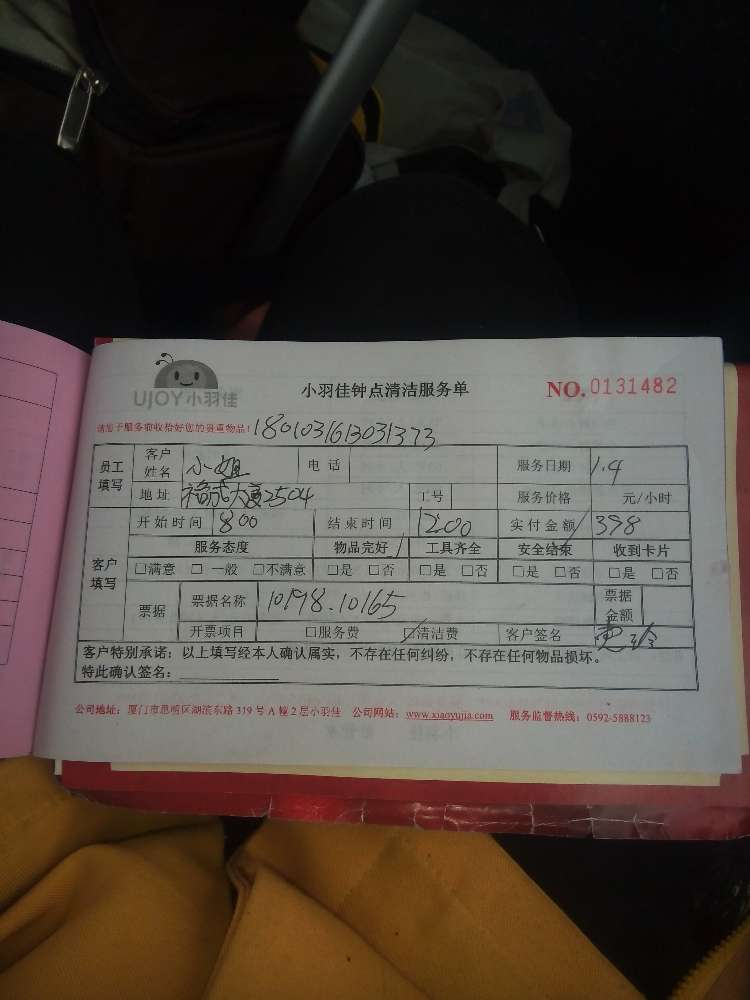 UJOY小羽佳
小羽佳钟点清洁服务单
NO.0131482
请您于服务前收拾好您的贵重物品！1801031613031373
员工填写 客户姓名 小姐 电话 服务日期 1.4
地址 福成大厦2504 工号 服务价格 元/小时
客户填写 开始时间 800 结束时间 1200 实付金额 398
服务态度 物品完好 工具齐全 安全结束 收到卡片
□满意 □一般 □不满意 □是 □否 □是 □否 □是 □否 □是 □否
票据 票据名称 10198.10165 票据金额
开票项目 □服务费 □清洁费 客户签名
客户特别承诺：以上填写经本人确认属实，不存在任何纠纷，不存在任何物品损坏。
特此确认签名：
公司地址：厦门市思明区湖滨东路319号A幢2层小羽佳 公司网站：www.xiaoyujia.com 服务监督热线：0592-5888123